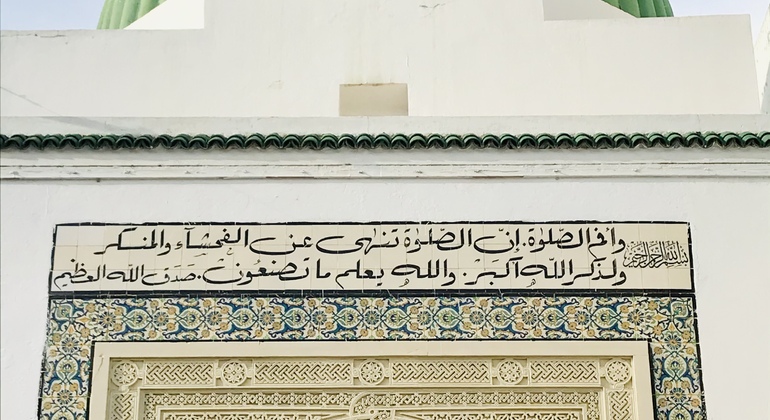 بسم الله الرحمن الرحيم
وأقم الصلوة. إنّ الصّلوٰة تنهى عن الفحشآء والمنكر
ولذكر اللّه أكبَرُ. والله يعلم ما تصنعُونْ. صَدَقَ اللّه العظيم